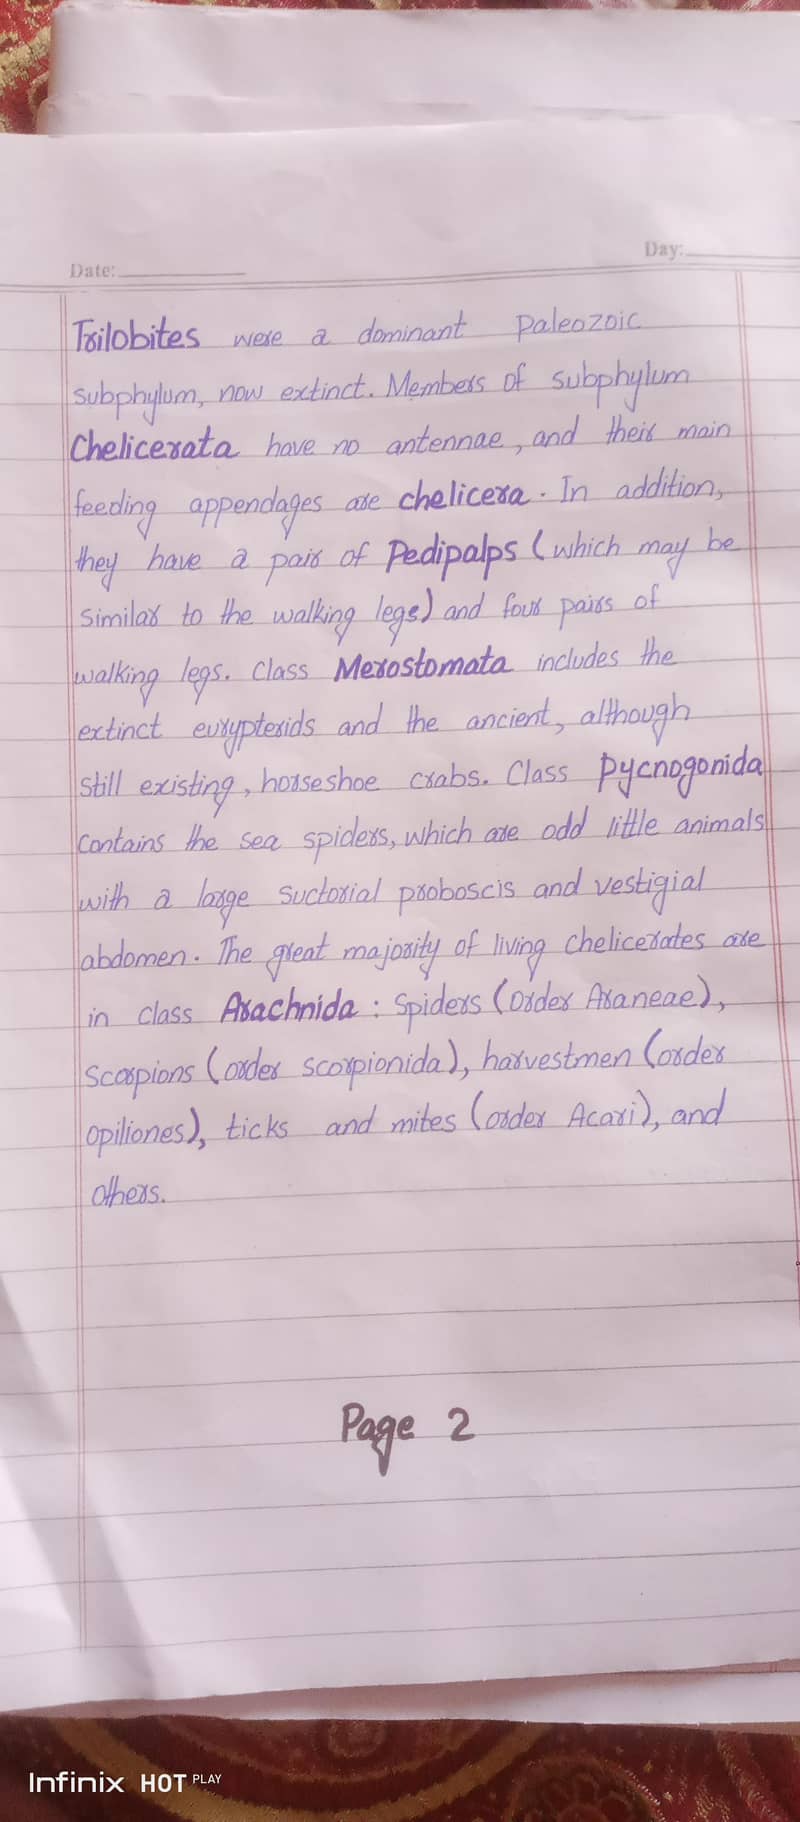 Day:
Date:
Trilobites were a dominant paleozoic
subphylum, now extinct. Members of subphylum
Chelicerata have no antennae, and their main
feeding appendages are chelicera. In addition,
they have a pair of Pedipalps (which may be
similar to the walking legs) and four pairs of
walking legs. Class Merostomata includes the
extinct eurypterids and the ancient, although
still existing, horseshoe crabs. Class Pycnogonida
contains the sea spiders, which are odd little animals
with a large suctorial proboscis and vestigial
abdomen. The great majority of living chelicerates are
in class Arachnida : Spiders (order Araneae),
Scorpions (order scorpionida), harvestmen (order
opiliones), ticks and mites (order Acari), and
others.
Page 2
Infinix HOT PLAY